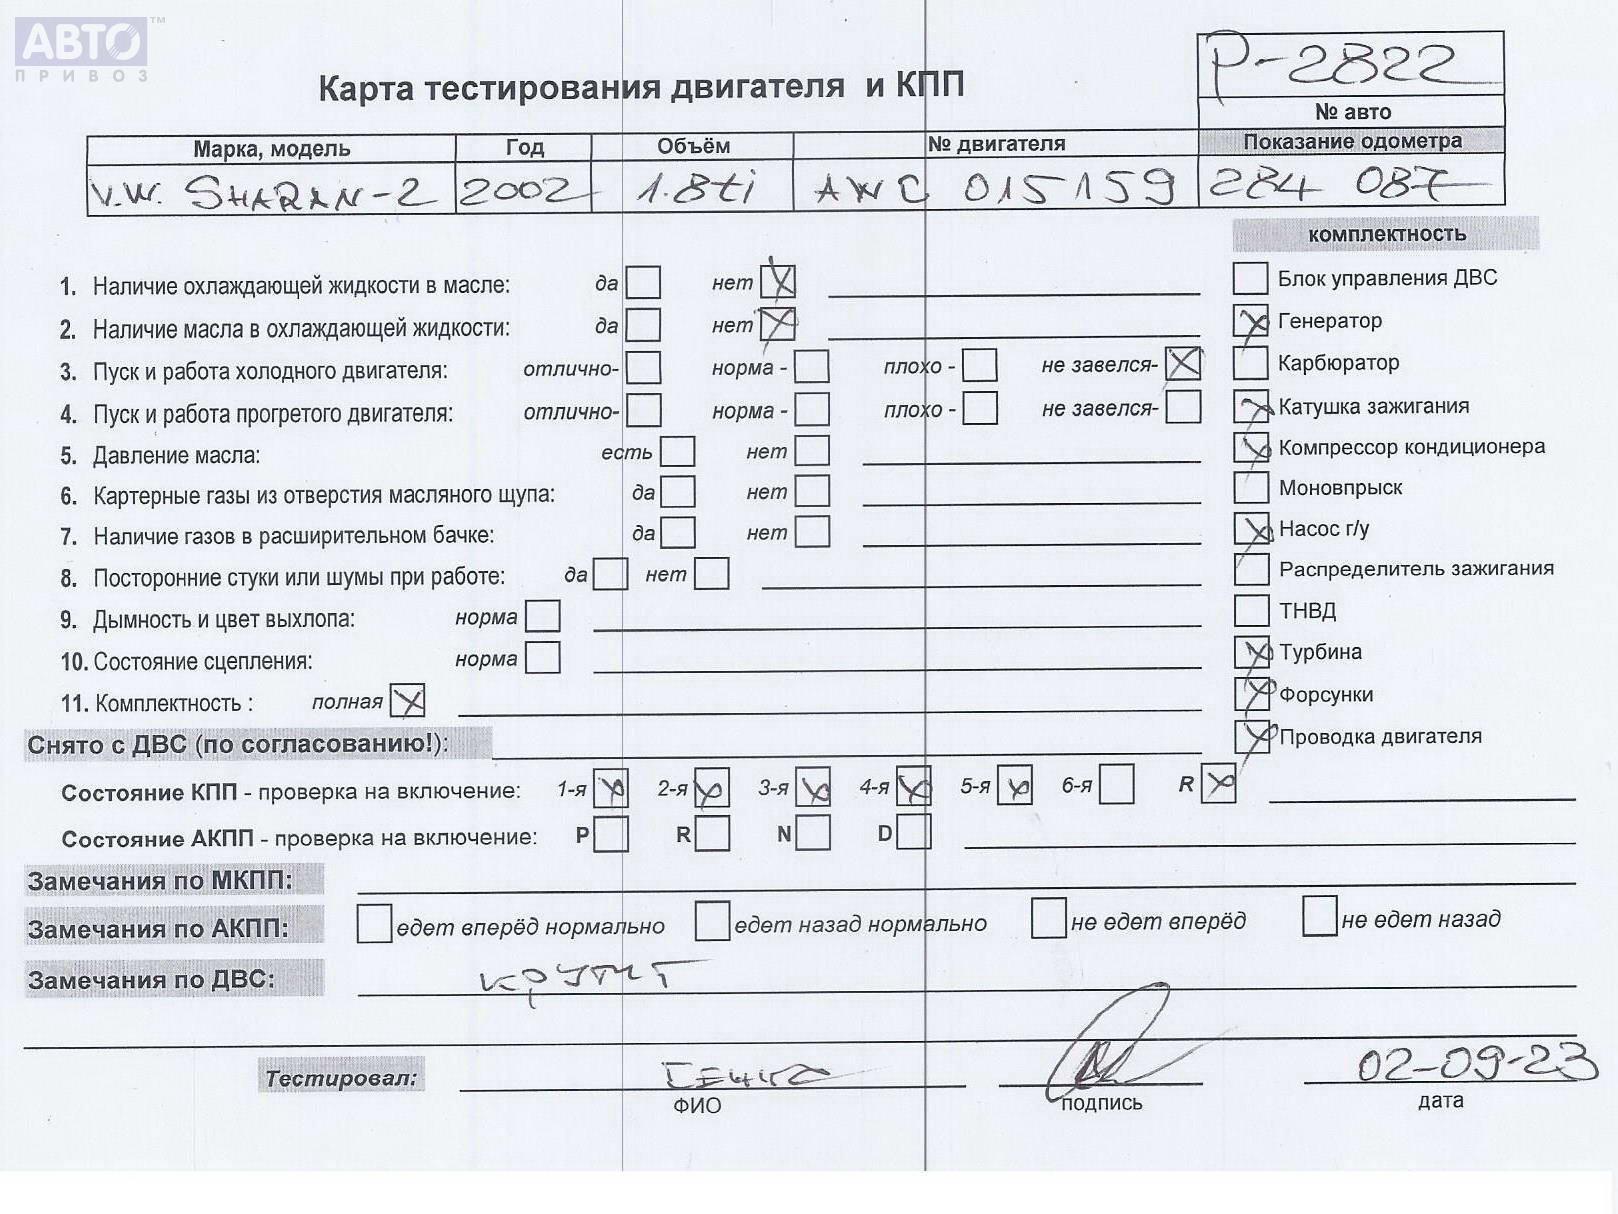 АВТО™
ПРИВОЗ
P-2822
Карта тестирования двигателя и КПП
№ авто
Марка, модель Год Объём № двигателя Показание одометра
V.W. SHARAN-2 2002 1.8ti AWC 015159 284 087
комплектность
1. Наличие охлаждающей жидкости в масле: да нет X
Блок управления ДВС
2. Наличие масла в охлаждающей жидкости: да нет X
X Генератор
3. Пуск и работа холодного двигателя: отлично- норма - плохо - не завелся- X
Карбюратор
4. Пуск и работа прогретого двигателя: отлично- норма - плохо - не завелся-
X Катушка зажигания
5. Давление масла: есть нет
X Компрессор кондиционера
6. Картерные газы из отверстия масляного щупа: да нет
Моновпрыск
7. Наличие газов в расширительном бачке: да нет
X Насос г/у
8. Посторонние стуки или шумы при работе: да нет
Распределитель зажигания
9. Дымность и цвет выхлопа: норма
ТНВД
10. Состояние сцепления: норма
X Турбина
11. Комплектность : полная X
X Форсунки
Снято с ДВС (по согласованию!):
X Проводка двигателя
Состояние КПП - проверка на включение: 1-я X 2-я X 3-я X 4-я X 5-я X 6-я R X
Состояние АКПП - проверка на включение: P R N D
Замечания по МКПП:
Замечания по АКПП: едет вперёд нормально едет назад нормально не едет вперёд не едет назад
Замечания по ДВС: крутит
Тестировал: 02-09-23
ФИО подпись дата